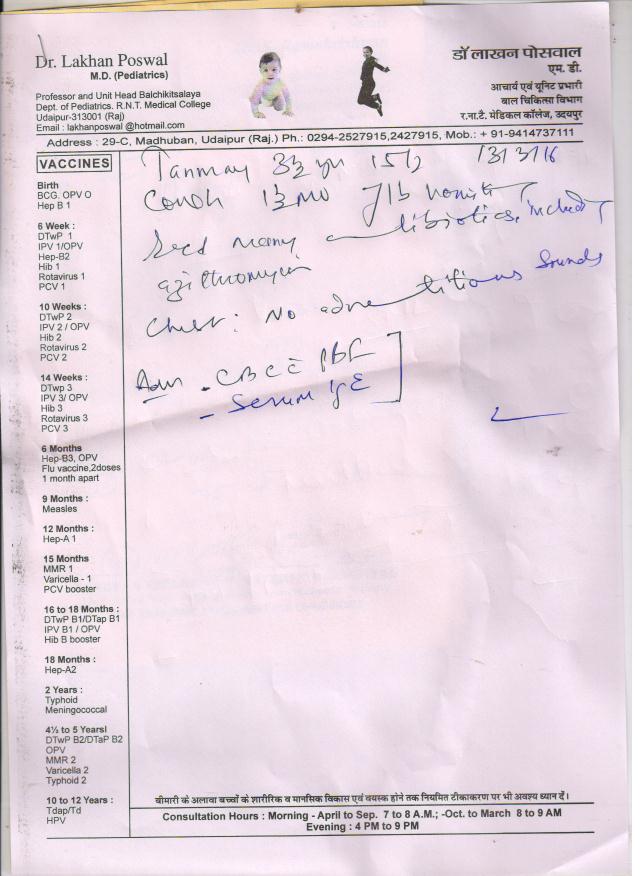 Dr. Lakhan Poswal
M.D. (Pediatrics)
Professor and Unit Head Balchikitsalaya
Dept. of Pediatrics. R.N.T. Medical College
Udaipur-313001 (Raj)
Email : lakhanposwal @hotmail.com
डॉ लाखन पोसवाल
एम. डी.
आचार्य एवं यूनिट प्रभारी
बाल चिकित्सा विभाग
र.ना.टै. मेडिकल कॉलेज, उदयपुर
Address : 29-C, Madhuban, Udaipur (Raj.) Ph.: 0294-2527915,2427915, Mob.: + 91-9414737111
VACCINES
Birth
BCG. OPV O
Hep B 1
6 Week :
DTwP 1
IPV 1/OPV
Hep-B2
Hib 1
Rotavirus 1
PCV 1
10 Weeks :
DTwP 2
IPV 2 / OPV
Hib 2
Rotavirus 2
PCV 2
14 Weeks :
DTwp 3
IPV 3/ OPV
Hib 3
Rotavirus 3
PCV 3
6 Months
Hep-B3, OPV
Flu vaccine,2doses
1 month apart
9 Months :
Measles
12 Months :
Hep-A 1
15 Months
MMR 1
Varicella - 1
PCV booster
16 to 18 Months :
DTwP B1/DTap B1
IPV B1 / OPV
Hib B booster
18 Months :
Hep-A2
2 Years :
Typhoid
Meningococcal
4½ to 5 Yearsl
DTwP B2/DTaP B2
OPV
MMR 2
Varicella 2
Typhoid 2
10 to 12 Years :
Tdap/Td
HPV
Tanmay 3½ yr 15½
Cough 1½ mo
many antibiotics, includ
azithromycin
Chest: No adventitious sounds
Adv - CBC PBF
- Serum IgE
बीमारी के अलावा बच्चों के शारीरिक व मानसिक विकास एवं वयस्क होने तक नियमित टीकाकरण पर भी अवश्य ध्यान दें।
Consultation Hours : Morning - April to Sep. 7 to 8 A.M.; -Oct. to March 8 to 9 AM
Evening : 4 PM to 9 PM